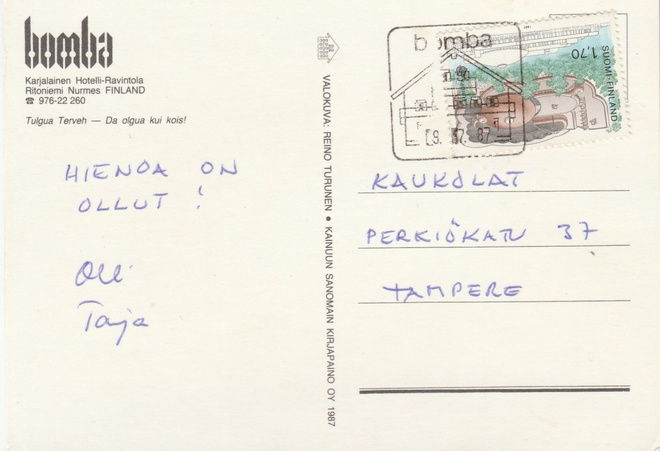 bomba
Karjalainen Hotelli-Ravintola
Ritoniemi Nurmes FINLAND
☎ 976-22 260
Tulgua Terveh — Da olgua kui kois!
HIENOA ON
OLLUT !
Olli
Tarja
VALOKUVA: REINO TURUNEN ● KAINUUN SANOMAIN KIRJAPAINO OY 1987
bomba
87
SUOMI-FINLAND
1,70
KAUKOLAT
PERKIÖKATU 37
TAMPERE